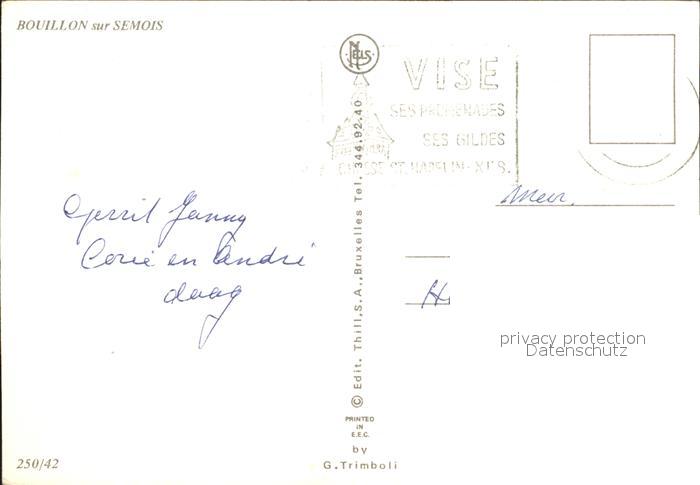 BOUILLON sur SEMOIS
NELS
VISE
SES PROMENADES
SES GILDES
CHASSE ST. HADELIN - XII° S.
Gerrit Janny
Corie en André
daag
Meur.
H
privacy protection
Datenschutz
© Edit. Thill, S.A., Bruxelles Tel. 344.92.40
PRINTED
IN
E.E.C.
by
G. Trimboli
250/42